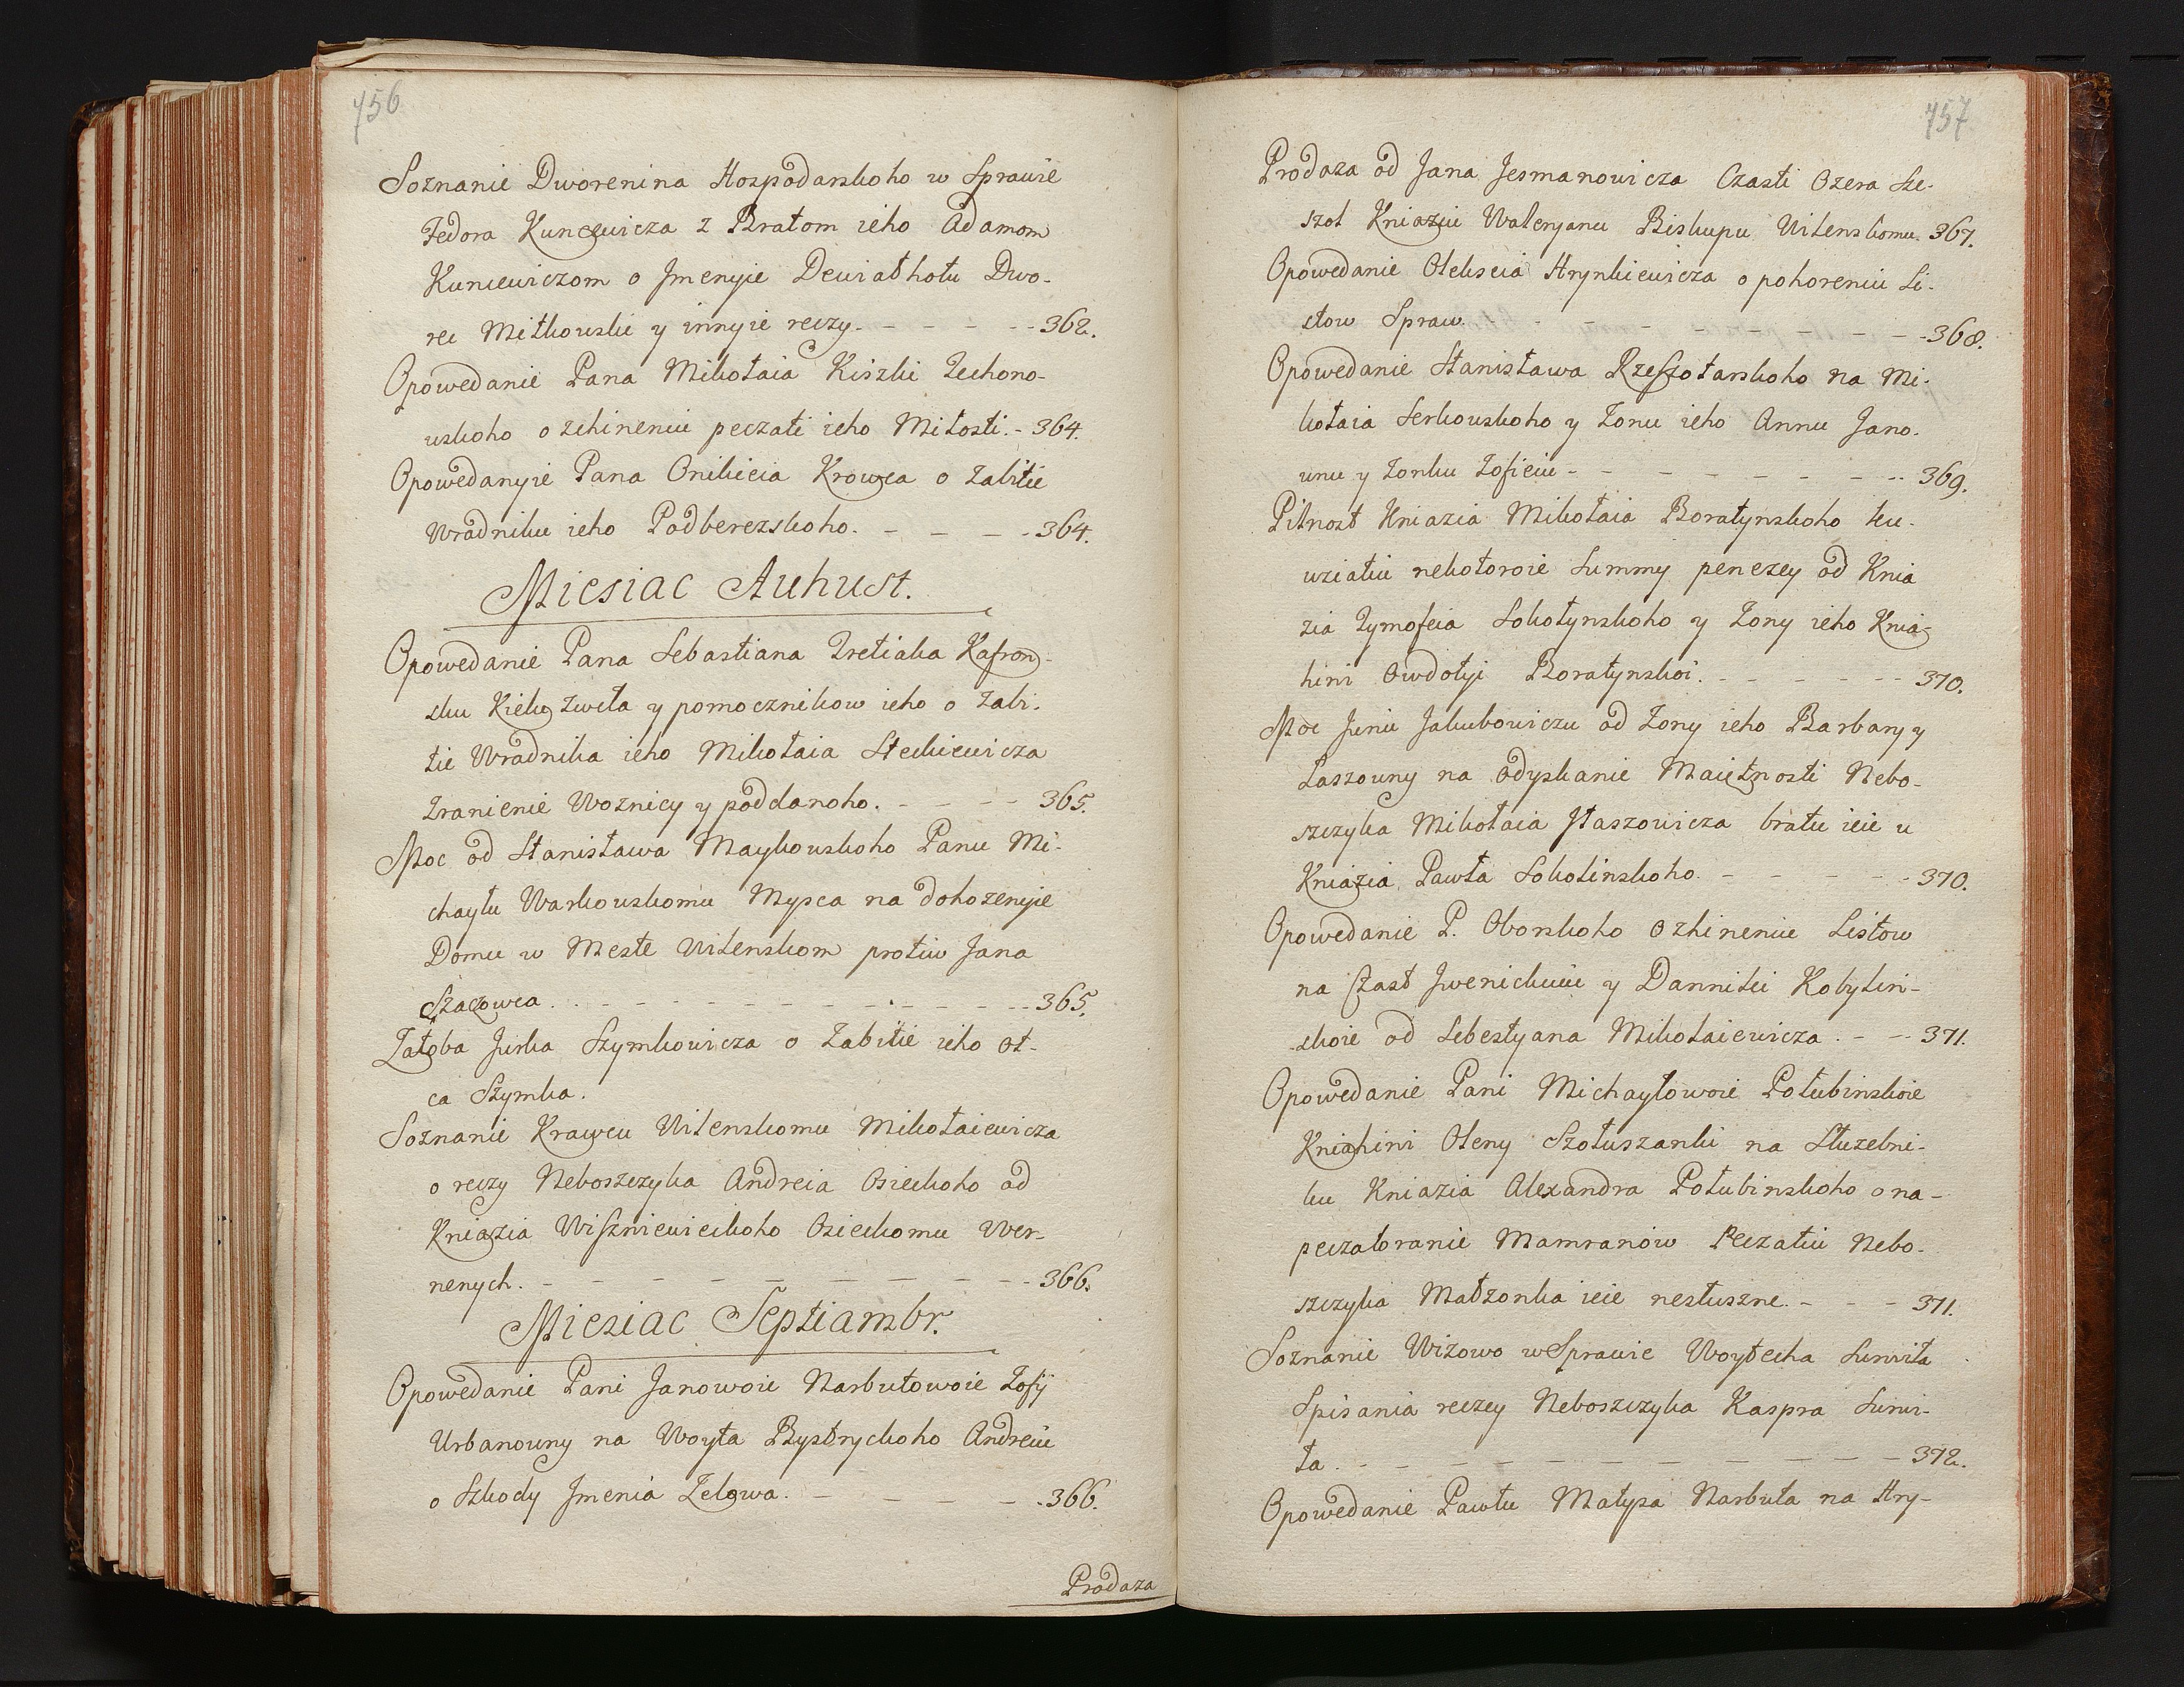 756
Soznanie Dworenina Hospodarskoho w Sprawie
Fedora Kuncewicza z Bratom ieho Adamom
Kuncewiczom o Jmenyie Dewiathołu Dwo-
rec Mitkowski y innyie reczy. - - - - - 362.
Opowedanie Pana Mikołaia Kiszki Techono-
wskoho o zhineniu peczati ieho Miłosti. - 364.
Opowedanyie Pana Onikieia Krowca o Zabitie
Wradniku ieho Podberezskoho. - - - - 364.
Miesiac Auhust.
Opowedanie Pana Sebastiana Tretiaka Kafron-
sku y pomocznikow ieho o Zabi-
tie Wradnika ieho Mikołaia Steckiewicza
Zranienie Woznicy y poddanoho. - - - - 365.
Moc od Stanisława Maykowskoho Panu Mi-
chayłu Warkowskomu Mysca na dohozenyie
Domu w Meste Wilenskom protiw Jana
Szacowca. - - - - - - - - - - - - 365.
Załoba Jurka Szymkowicza o Zabitie ieho ot-
ca Szymka.
Soznanie Krawcu Wilenskomu Mikołaiewicza
o reczy Neboszczyka Andreia Osieckoho od
Kniazia Wiszniewieckoho Osieckomu Wer-
nenych. - - - - - - - - - - - 366.
Miesiac Septiambr.
Opowedanie Pani Janowoie Narbutowoie Zofij
Urbanowny na Woyta Bystryckoho Andreiu
o Szkody Jmenia Zelowa. - - - - - 366.
Prodaza
757
Prodaza od Jana Jesmanowicza Czasti Ozera Sze-
szol Kniaziu Waleryanu Biskupu Wilenskomu. 367.
Opowedanie Olekseia Hrynkiewicza o pohoreniu Li-
stow Spraw. - - - - - - - - - - 368.
Opowedanie Stanisława Rzeszotarskoho na Mi-
kołaia Serkowskoho y Zonu ieho Annu Jano-
wnu y Zonku Zofieiu - - - - - - - - 369.
Pilnost Kniazia Mikołaia Boratynskoho ku
wziatiu nekotoroie Summy penezey od Knia
zia Tymofeia Sokolynskoho y Zony ieho Knia-
hini Owdotyi Boratynskoi. - - - - - - 370.
Moc Juriu Jakubowiczu od Zony ieho Barbary y
Łaszowny na odyskanie Maiętnosti Nebo-
szczyka Mikołaia Staszowicza bratu ieie u
Kniazia Pawła Sokolinskoho. - - - - - 370.
Opowedanie P. Oborskoho o zhineniu Listow
na Czast y Kobylin-
skoie od Sebestyana Mikołaiewicza. - - 371.
Opowedanie Pani Michayłowoie Połubinskoie
Kniahini Oleny Szołuszanki na Słuzebni-
ku Kniazia Alexandra Połubinskoho o na-
peczatoranie Mamranow Peczatiu Nebo-
szczyka Małzonka ieie nesłuszne. - - - 371.
Soznanie Wizowo w Sprawie Woytecha Surwiła
Spisania reczey Neboszczyka Kaspra Surwi-
ła. - - - - - - - - - - - - 372.
Opowedanie Pawłu Matysa Narbuta na Hry-